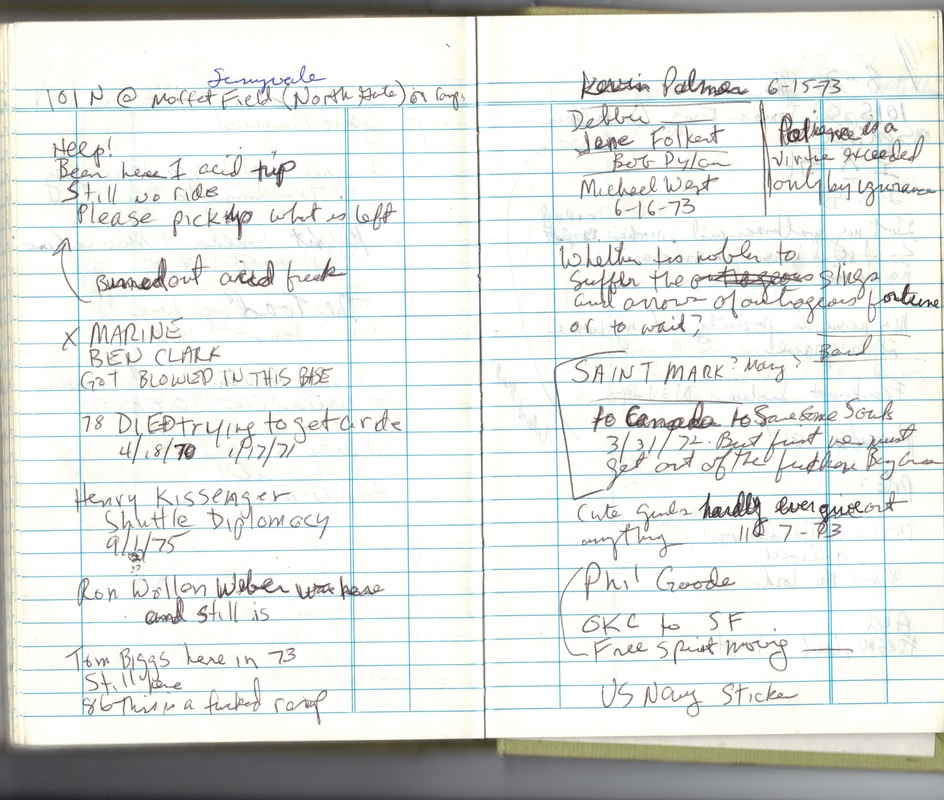 Sunnyvale
101 N @ Moffet Field (North Gate) on ramp
Help!
Been here 1 acid trip
Still no ride
Please pick up what is left
Burned out acid freak
X MARINE
BEN CLARK
GOT BLOWED IN THIS BASE
78 DIED trying to get a ride
4/18/70 1/17/71
Henry Kissenger
Shuttle Diplomacy
9/1/75
Ron Wollan Weber was here
and still is
Tom Biggs here in 73
Still here
86 This is a fucked ramp
Kevin Palmer 6-15-73
Debbie
Jane Folkert
Bob Dylan
Michael West
6-16-73
Patience is a
virtue exceeded
only by ignorance
Whether tis nobler to
suffer the outrageous slings
and arrows of outrageous fortune
or to wait?
Bard
SAINT MARK? Mary?
to Canada to Save Some Souls
3/31/72. But first we must
get out of the Bay Area
Cute girls hardly ever give out
anything 7-73
Phil Goode
OKC to SF
Free Spirit moving
US Navy Sticker